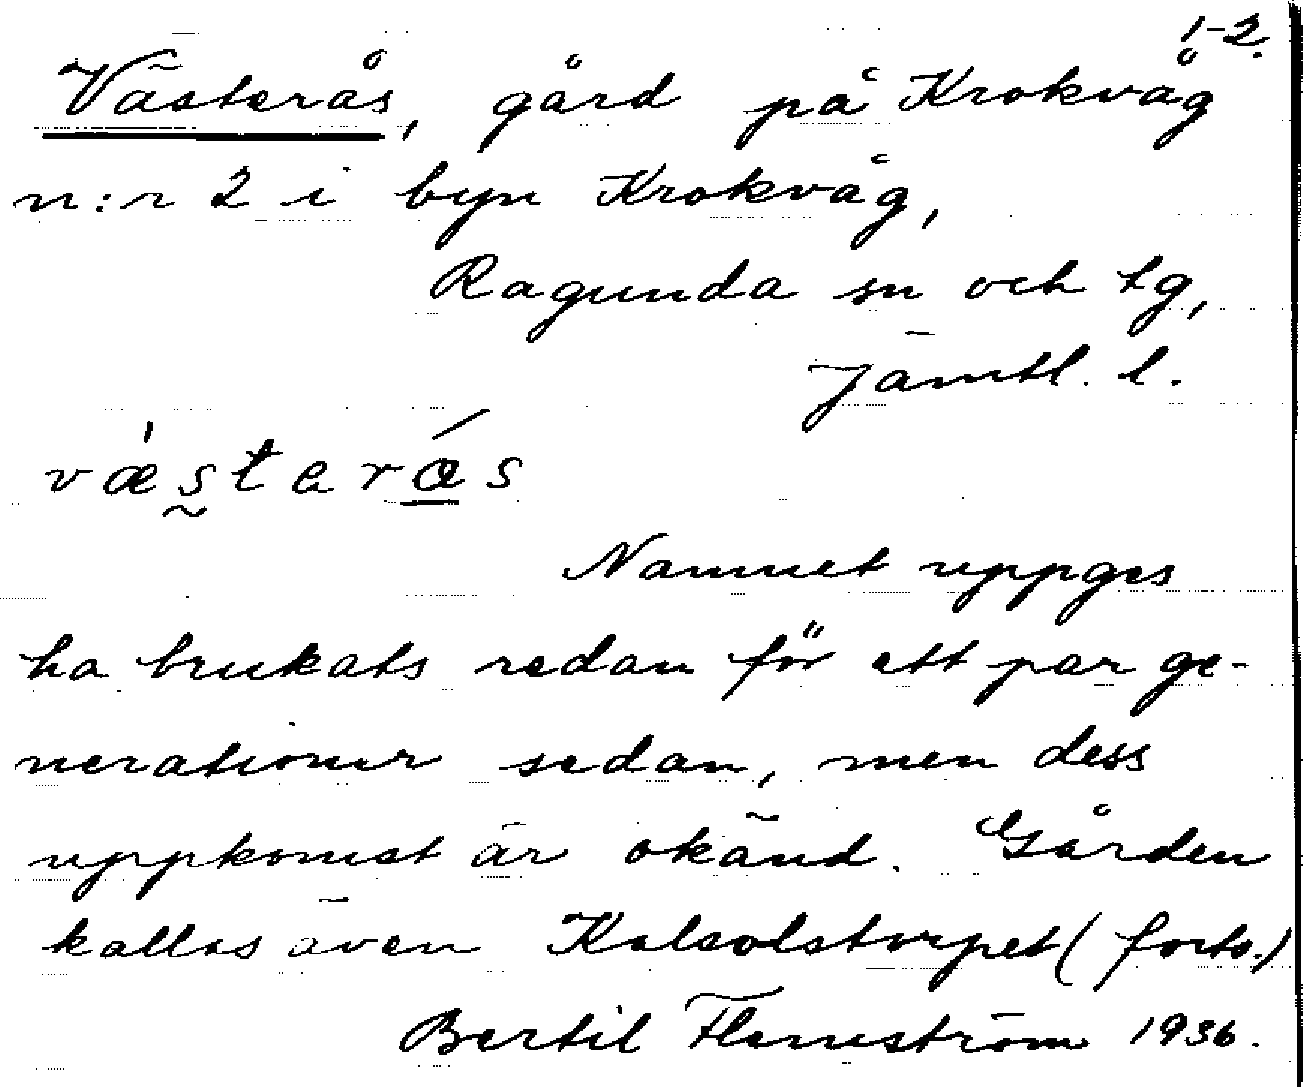 1-2.
Västerås, gård på Krokvåg
n:r 2 i byn Krokvåg,
Ragunda sn och tg,
Jämtl. l.
væ̀steráes
Namnet uppges
ha brukats redan för ett par ge-
nerationer sedan, men dess
uppkomst är okänd. Gården
kallas även (forts.)
Bertil Flemström 1936.